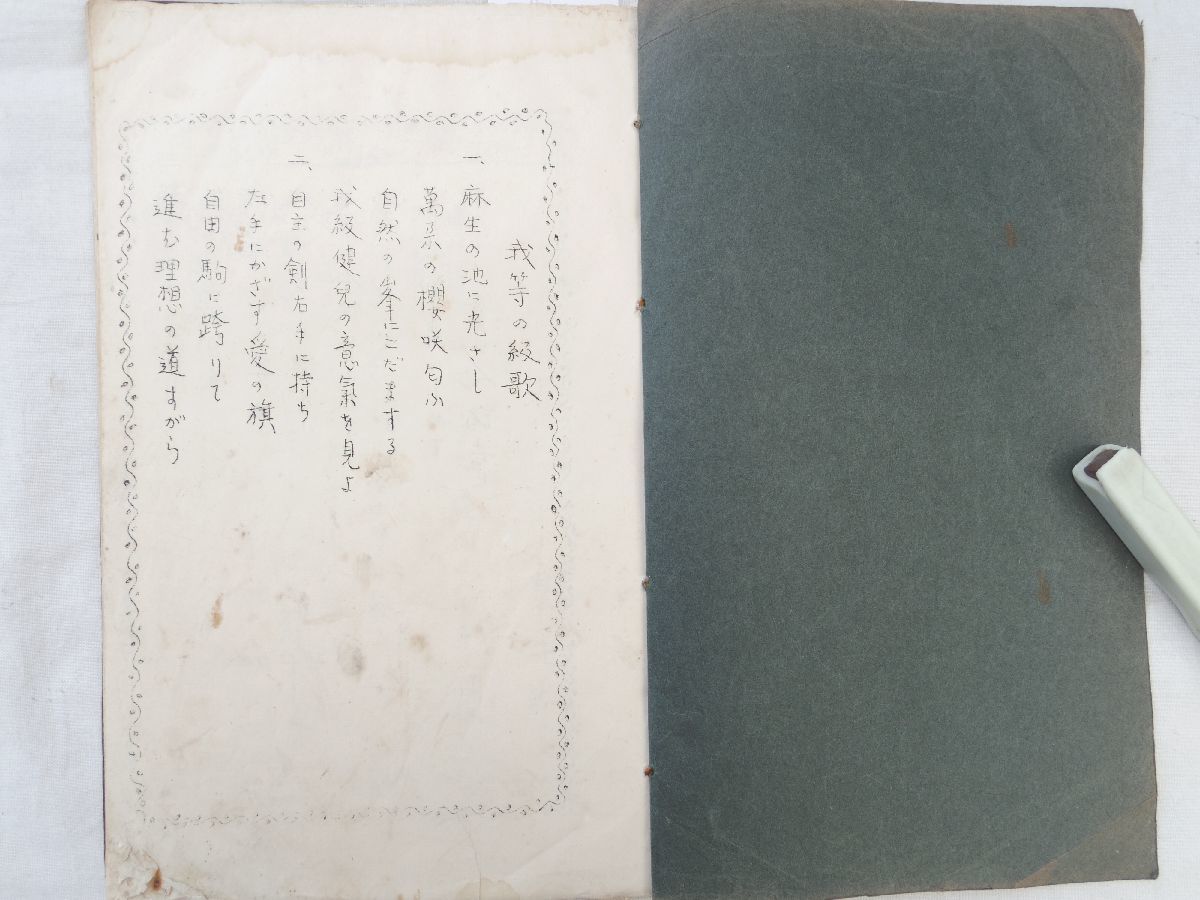 我等の級歌
一、麻生の池に光さし
萬朶の櫻咲匂ふ
自然の峯にこだまする
我級健兒の意氣を見よ
二、自主の劍右手に持ち
左手にかざす愛の旗
自由の駒に跨りて
進む理想の道すがら